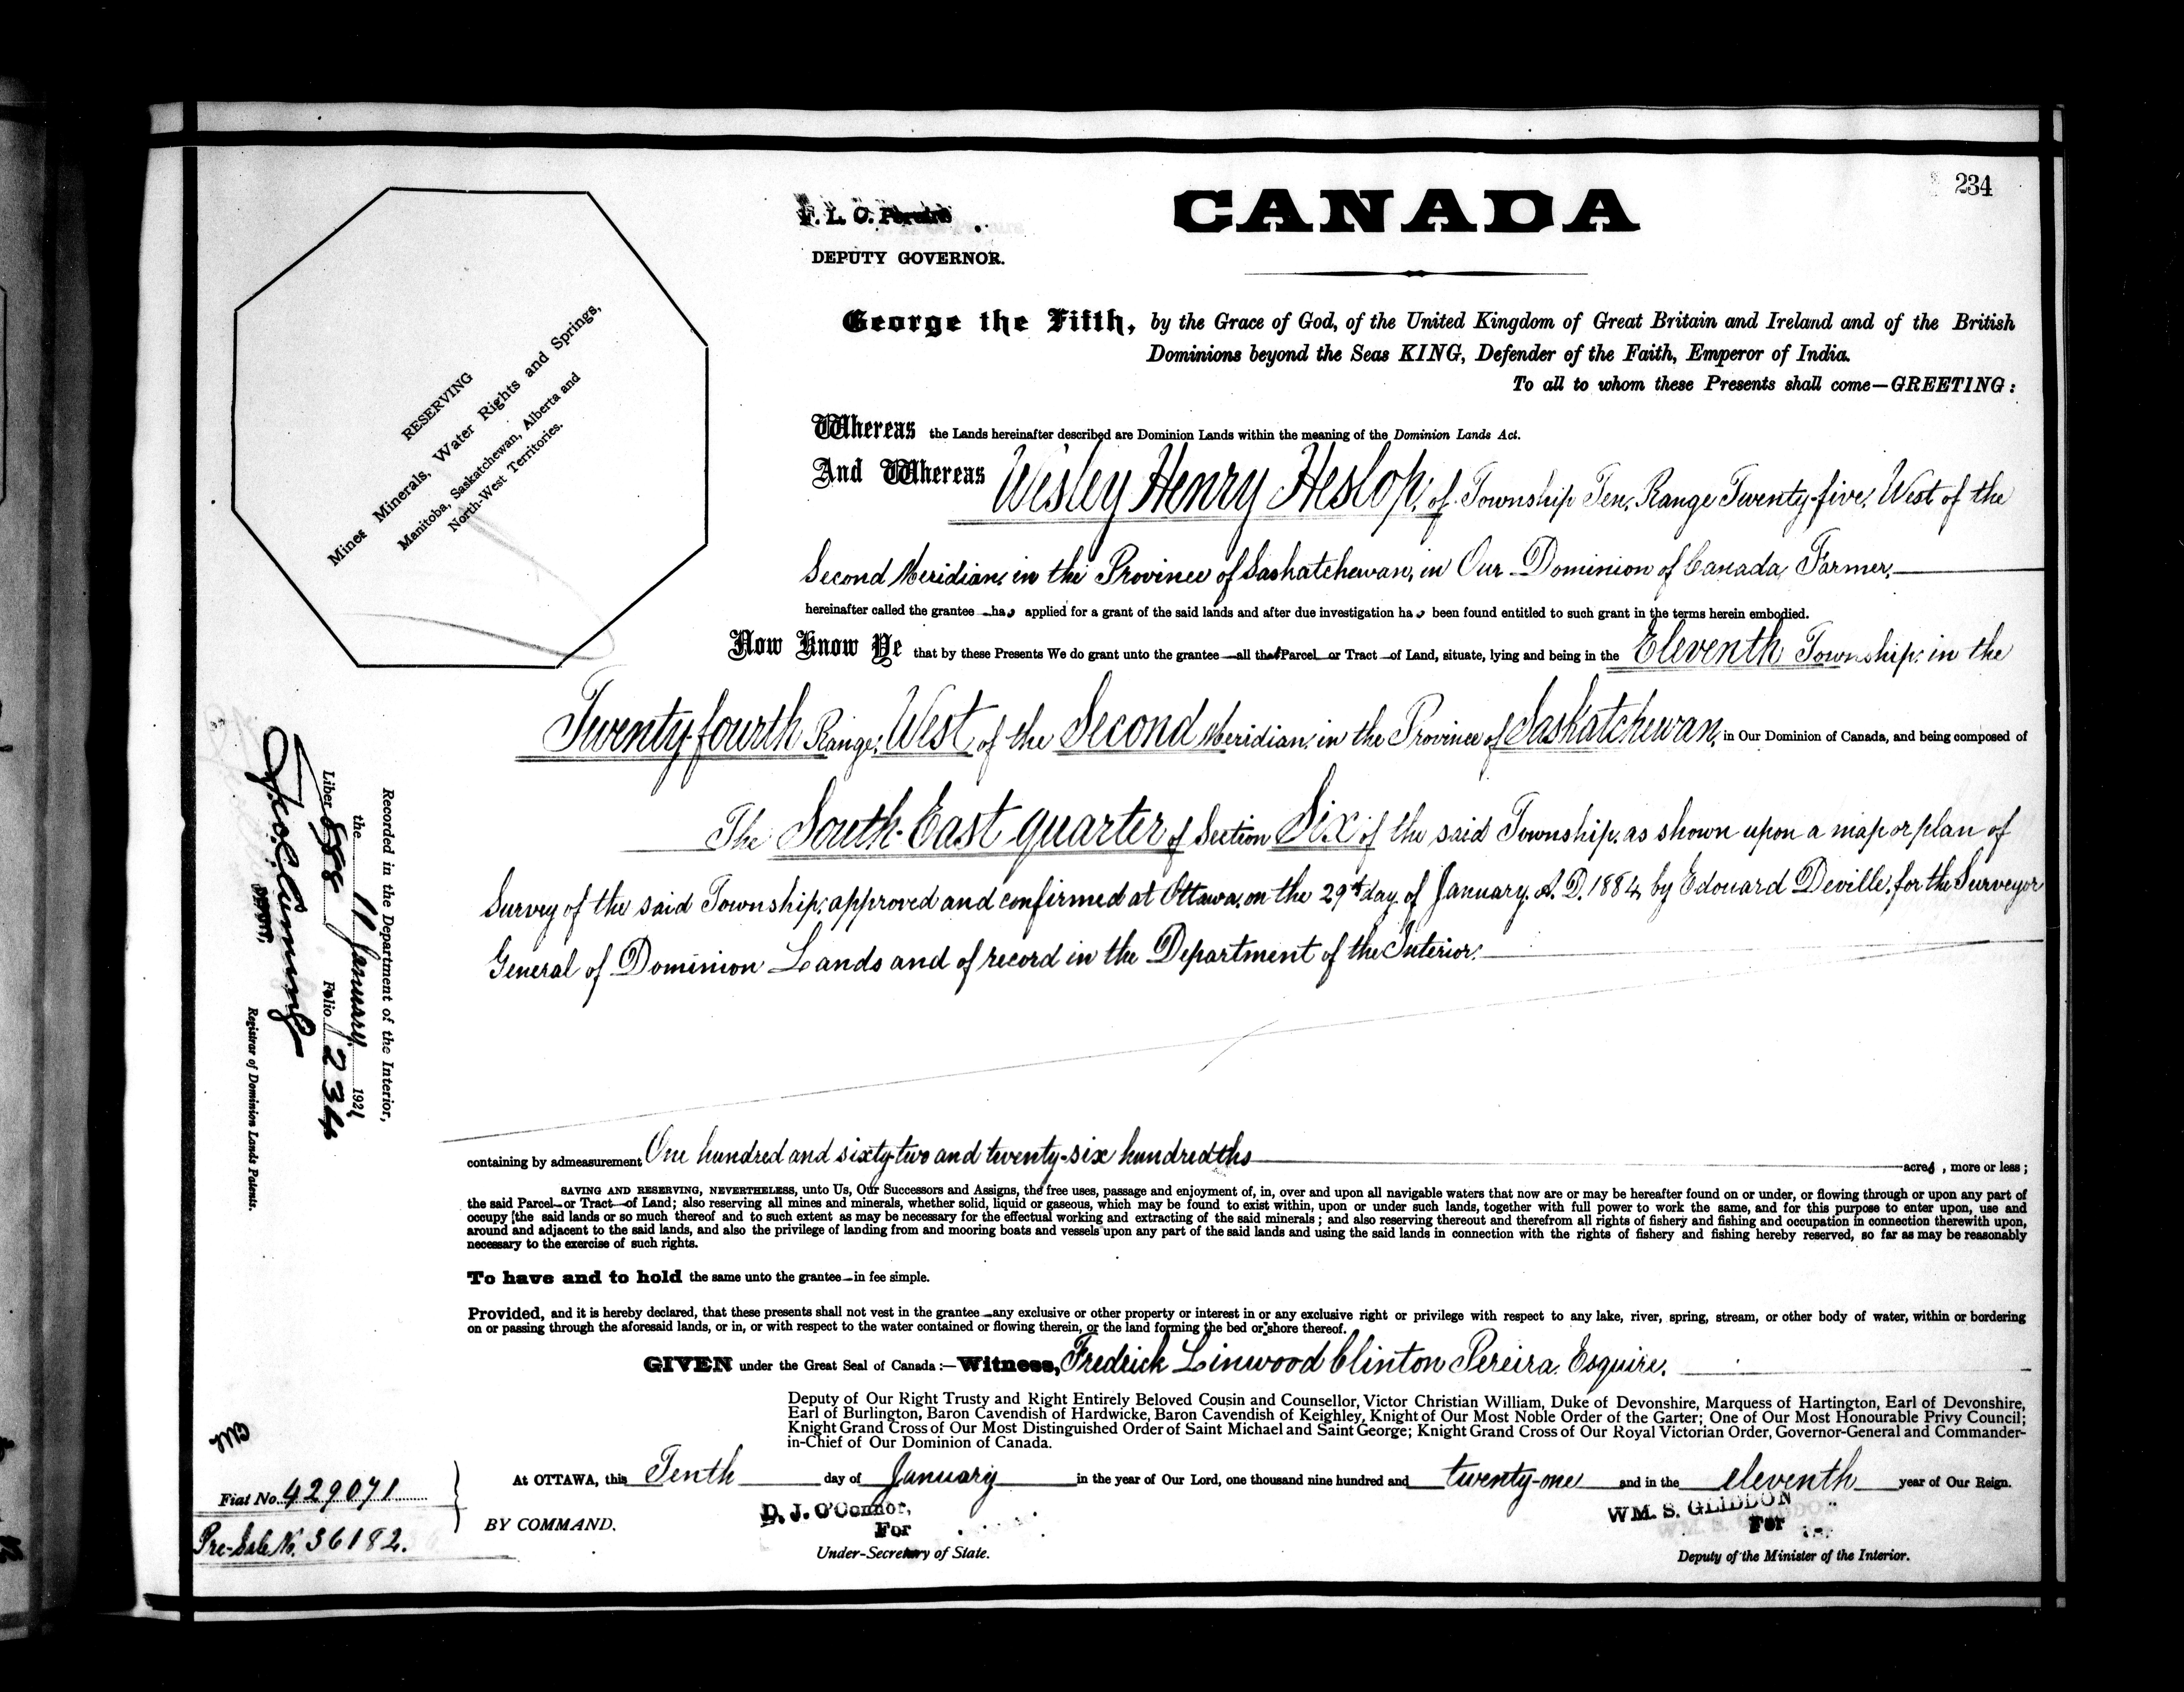 234
F. L. C. Pereira
DEPUTY GOVERNOR.
CANADA
George the Fifth, by the Grace of God, of the United Kingdom of Great Britain and Ireland and of the British
Dominions beyond the Seas KING, Defender of the Faith, Emperor of India.
To all to whom these Presents shall come—GREETING:
RESERVING
Mines Minerals, Water Rights and Springs,
Manitoba, Saskatchewan, Alberta and
North-West Territories.
Whereas the Lands hereinafter described are Dominion Lands within the meaning of the Dominion Lands Act.
And Whereas Wesley Henry Heslop, of Township Ten, Range Twenty-five, West of the
Second Meridian, in the Province of Saskatchewan, in Our Dominion of Canada, Farmer,
hereinafter called the grantee has applied for a grant of the said lands and after due investigation has been found entitled to such grant in the terms herein embodied.
Now Know Ye that by these Presents We do grant unto the grantee all that Parcel or Tract of Land, situate, lying and being in the Eleventh Township, in the
Twenty-fourth Range, West of the Second Meridian, in the Province of Saskatchewan, in Our Dominion of Canada, and being composed of
The South-East quarter of Section Six of the said Township, as shown upon a map or plan of
Survey of the said Township, approved and confirmed at Ottawa, on the 29th day of January, A.D. 1884, by Edouard Deville, for the Surveyor
General of Dominion Lands and of record in the Department of the Interior.
containing by admeasurement One hundred and sixty-two and twenty-six hundredths acres, more or less;
SAVING AND RESERVING, NEVERTHELESS, unto Us, Our Successors and Assigns, the free uses, passage and enjoyment of, in, over and upon all navigable waters that now are or may be hereafter found on or under, or flowing through or upon any part of
the said Parcel or Tract of Land; also reserving all mines and minerals, whether solid, liquid or gaseous, which may be found to exist within, upon or under such lands, together with full power to work the same, and for this purpose to enter upon, use and
occupy the said lands or so much thereof and to such extent as may be necessary for the effectual working and extracting of the said minerals; and also reserving thereout and therefrom all rights of fishery and fishing and occupation in connection therewith upon,
around and adjacent to the said lands, and also the privilege of landing from and mooring boats and vessels upon any part of the said lands and using the said lands in connection with the rights of fishery and fishing hereby reserved, so far as may be reasonably
necessary to the exercise of such rights.
To have and to hold the same unto the grantee in fee simple.
Provided, and it is hereby declared, that these presents shall not vest in the grantee any exclusive or other property or interest in or any exclusive right or privilege with respect to any lake, river, spring, stream, or other body of water, within or bordering
on or passing through the aforesaid lands, or in, or with respect to the water contained or flowing therein, or the land forming the bed or shore thereof.
GIVEN under the Great Seal of Canada:—Witness, Fredrick Linwood Clinton Pereira, Esquire,
Deputy of Our Right Trusty and Right Entirely Beloved Cousin and Counsellor, Victor Christian William, Duke of Devonshire, Marquess of Hartington, Earl of Devonshire,
Earl of Burlington, Baron Cavendish of Hardwicke, Baron Cavendish of Keighley, Knight of Our Most Noble Order of the Garter; One of Our Most Honourable Privy Council;
Knight Grand Cross of Our Most Distinguished Order of Saint Michael and Saint George; Knight Grand Cross of Our Royal Victorian Order, Governor-General and Commander-
in-Chief of Our Dominion of Canada.
At OTTAWA, this Tenth day of January in the year of Our Lord, one thousand nine hundred and twenty-one and in the eleventh year of Our Reign.
BY COMMAND.
D. J. O'Connor,
For
Under-Secretary of State.
WM. S. GLIDDON
For
Deputy of the Minister of the Interior.
Recorded in the Department of the Interior,
the 11 January 1921
Liber 588 Folio 234
Registrar of Dominion Lands Patents.
Fiat No. 429071
Pre-Sale No. 36182.